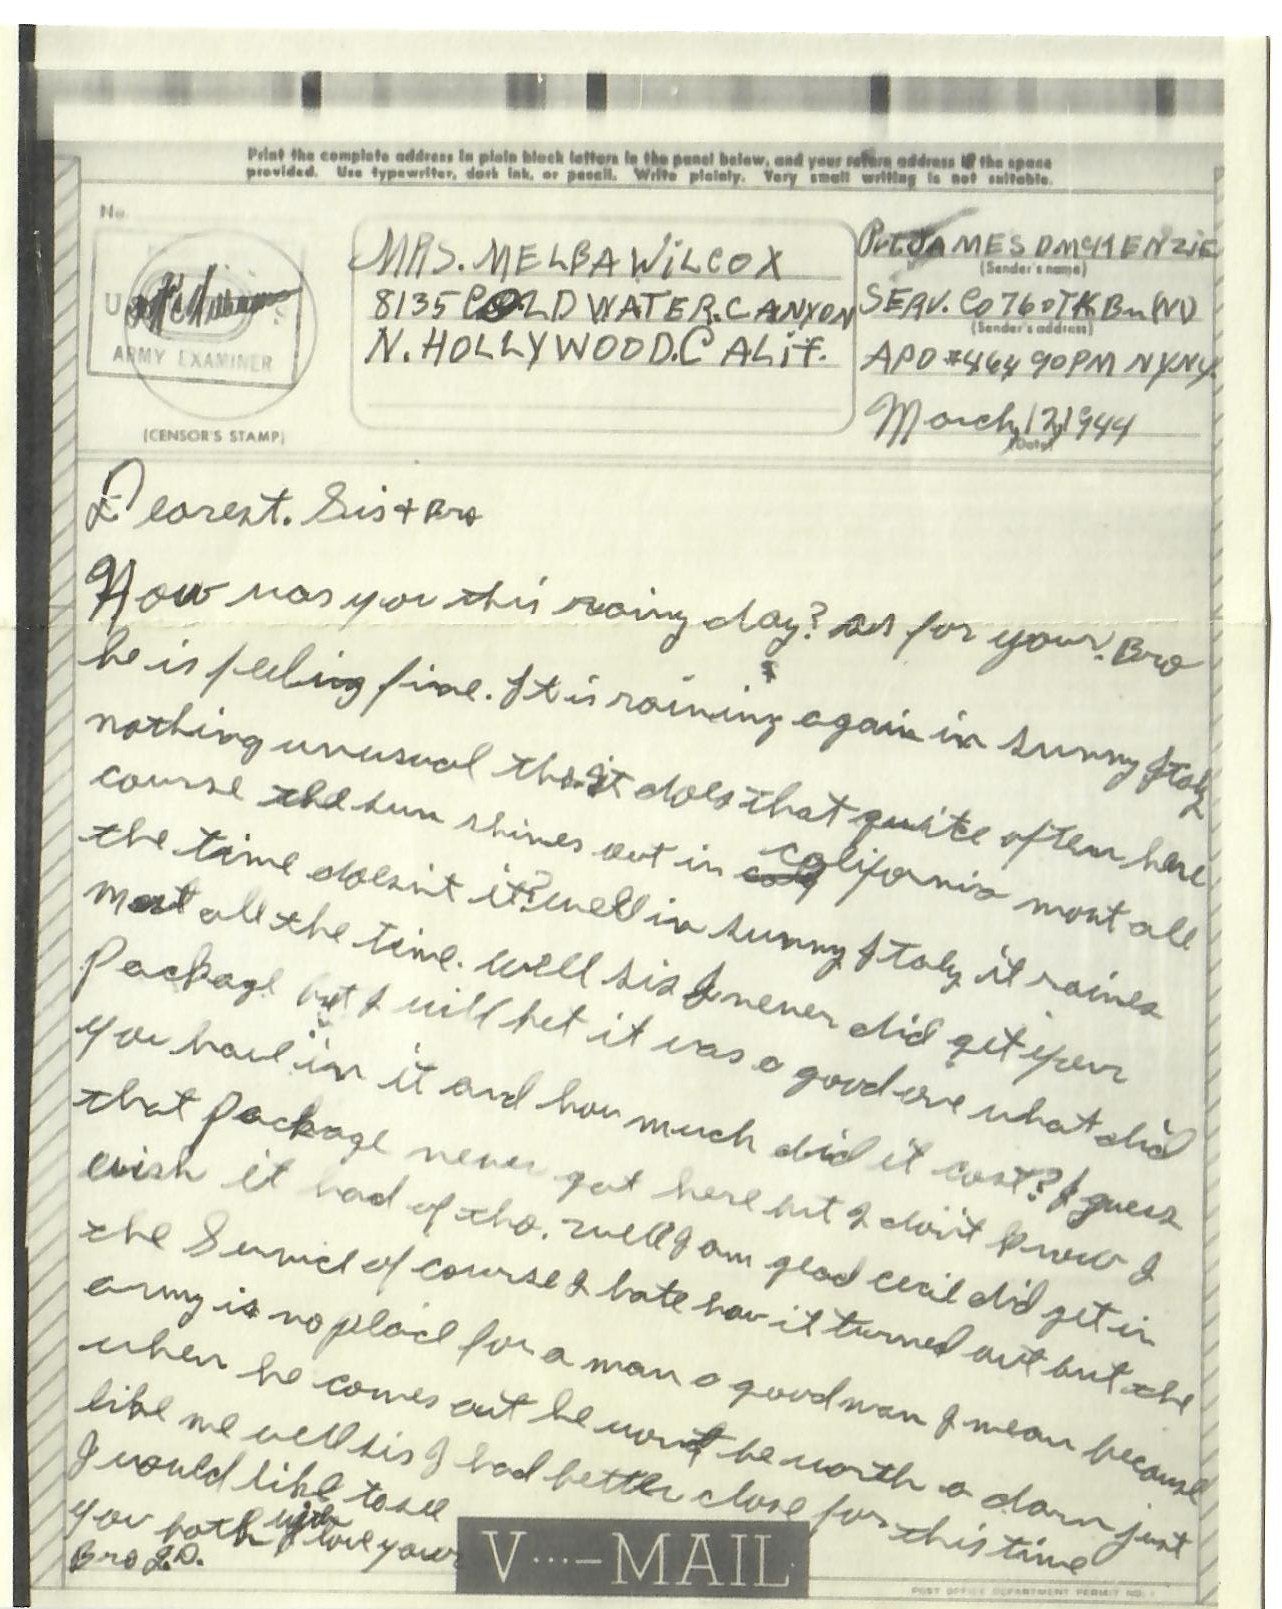 Print the complete address in plain block letters in the panel below, and your return address in the space
provided. Use typewriter, dark ink, or pencil. Write plainly. Very small writing is not suitable.
No.
MRS. MELBA WILCOX
8135 COLD WATER. CANYON
N. HOLLYWOOD. CALIF.
Pvt. JAMES D McKENZIE
(Sender's name)
SERV. Co 760 TK Bn (M)
(Sender's address)
APO #464 % PM NYNY.
March, 12, 1944
(Date)
ARMY EXAMINER
(CENSOR'S STAMP)
Dearest. Sis + Bro
How was you this rainy day? as for your. Bro
he is feeling fine. It is raining again in sunny Italy
nothing unusual tho. It does that quite often here
course the sun shines out in california most all
the time doesn't it? well in sunny Italy it raines
most all the time. well sis I never did get your
Package but I will bet it was a good one what did
you have in it and how much did it cost? I guess
that Package never got here but I don't know I
wish it had of tho. well I am glad cecil did get in
the Service of course I hate how it turned out but the
army is no place for a man a good man I mean because
when he comes out he wont be worth a darn just
like me well sis I had better close for this time
I would like to see
you both love your
Bro J.D.
V···–MAIL
POST OFFICE DEPARTMENT PERMIT NO.